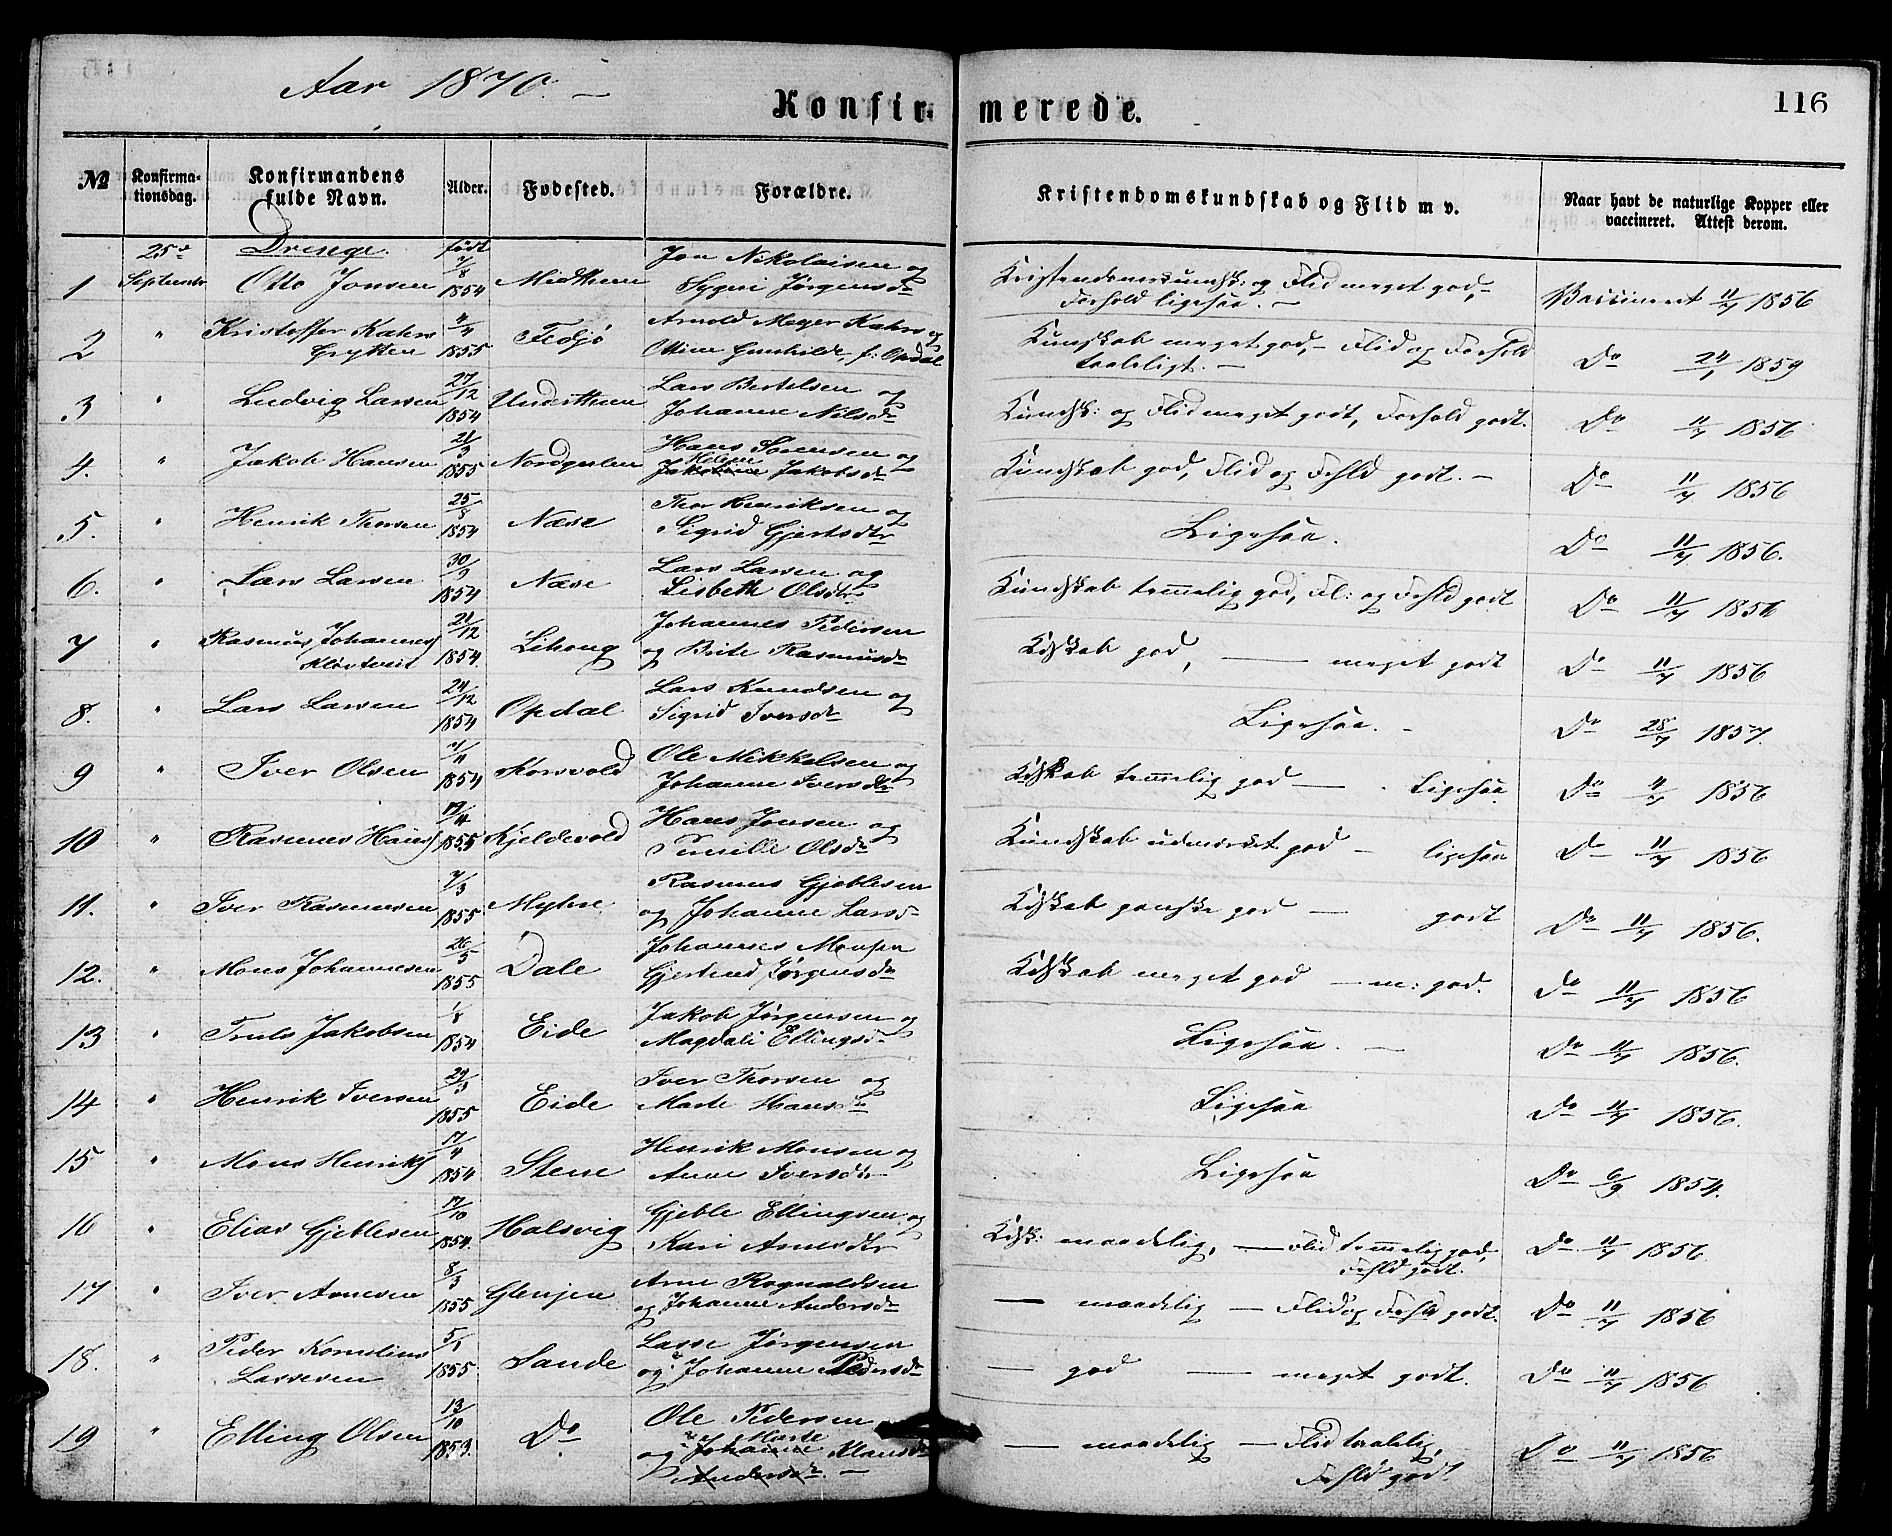 Aar 1870. –
Konfirmerede.
116
№
Konfirma-
tionsdag.
Konfirmandens
fulde Navn.
Alder.
Fødested.
Forældre.
Kristendomskundskab og Flid m v.
Naar havt de naturlige Kopper eller
vaccineret. Attest derom.
25de Drenge. født
1 September Otto Jonsen 7/8 1854 Midthun Jon Nikolaisen og
Sygni Jørgensdr
Kristendomskundsk: og Flid meget god,
Forhold ligesaa. –
Vaccineret 11/7 1856
2 " Kristoffer Kahrs 4/4 1855 Fedjø Arnold Meyer Kahrs og
Grytten Ottine Gunhilde, f: Opdal
Kundskab meget god, – Flid og Forhold
taaleligt. –
Do 24/1 1859
3 " Ludvig Larsen 27/12 1854 Underthun Lars Bertelsen og
Johanne Nilsdr
Kundsk: og Flid meget godt, Forhold godt.
Do 11/7 1856
4. " Jakob Hansen 21/3 1855 Hans Sørensen og
Helene
Jakobine Jakobsdr
Kundskab god, Flid og Fhld godt. –
Do 11/7 1856
5. " Henrik Thorsen 25/8 1854 Næse Thor Henriksen og
Sigrid Gjertsdtr
Ligesaa.
Do 11/7 1856.
6. " Lars Larsen 30/9 1854 Næse Lars Larsen og
Lisbeth Olsdtr
Kundskab temmelig god, Fl: og Fhld godt
Do 11/7 1856
7 " Rasmus Johannes 21/12 1854. Lihoug Johannes Pedersen
Kløvtveit og Brite Rasmusdr
Kdskab god, — meget godt
Do 11/7 1856
8. " Lars Larsen 24/12 1854 Opdal Lars Knudsen og
Sigrid Iversdr
Ligesaa. –
Do 28/7 1857.
9 " Iver Olsen 7/11 1854 Korsvold Ole Mikkelsen og
Johanne Iversdtr
Kdskab temmelig god — . Ligesaa.
Do 11/7 1856
10 " Rasmus Hans 17/4 1855 Kjeldevold Hans Jonsen og
Pernille Olsdr
Kundskab udmærket god – ligesaa
Do 11/7 1856
11. " Iver Rasmussen 7/3 1855 Myhre Rasmus Gjeblesen
og Johanne Larsdr
Kdskab ganske god — godt
Do 11/7 1856.
12. " Mons Johannesen 26/5 1855 Dale Johannes Monsen
Gjertrud Jørgensdr
Kdskab meget god — m: god.
Do 11/7 1856
13 " Truls Jakobsen 1/8 1854 Eide Jakob Jørgensen og
Magdali Ellingsdr
Ligesaa. —
Do 11/7 1856.
14 " Henrik Iversen 29/3 1855 Eide Iver Thorsen og
Marte Hansdr
Ligesaa
Do 11/7 1856.
15 " Mons Henriks 17/4 1854 Stene Henrik Monsen og
Anne Iversdtr
Ligesaa
Do 6/9 1854.
16 " Elias Gjeblesen 17/10 1854. Halsvig Gjeble Ellingsen og
Kari Arnesdtr
Kdsk: maadelig, — Flid temmelig god,
Fhld godt.
Do 11/7 1856
17 " Iver Arnesen 8/3 1855 Glenjen Arne Rognaldsen
og Johanne Andersdr
— maadelig — Flid og Fhld godt.
Do 11/7 1856
18. " Peder Kornelius 5/1 1855 Sande Lasse Jørgensen
Lassesen og Johanne Pedersdr
— god — meget godt.
Do 11/7 1856
19 " Elling Olsen 13/10 1853. Do Ole Pedersen
Marte
og Johanne Klausdr
Andersdr –
— maadelig — Flid taalelig,
Fhld godt
Do 11/7 1856